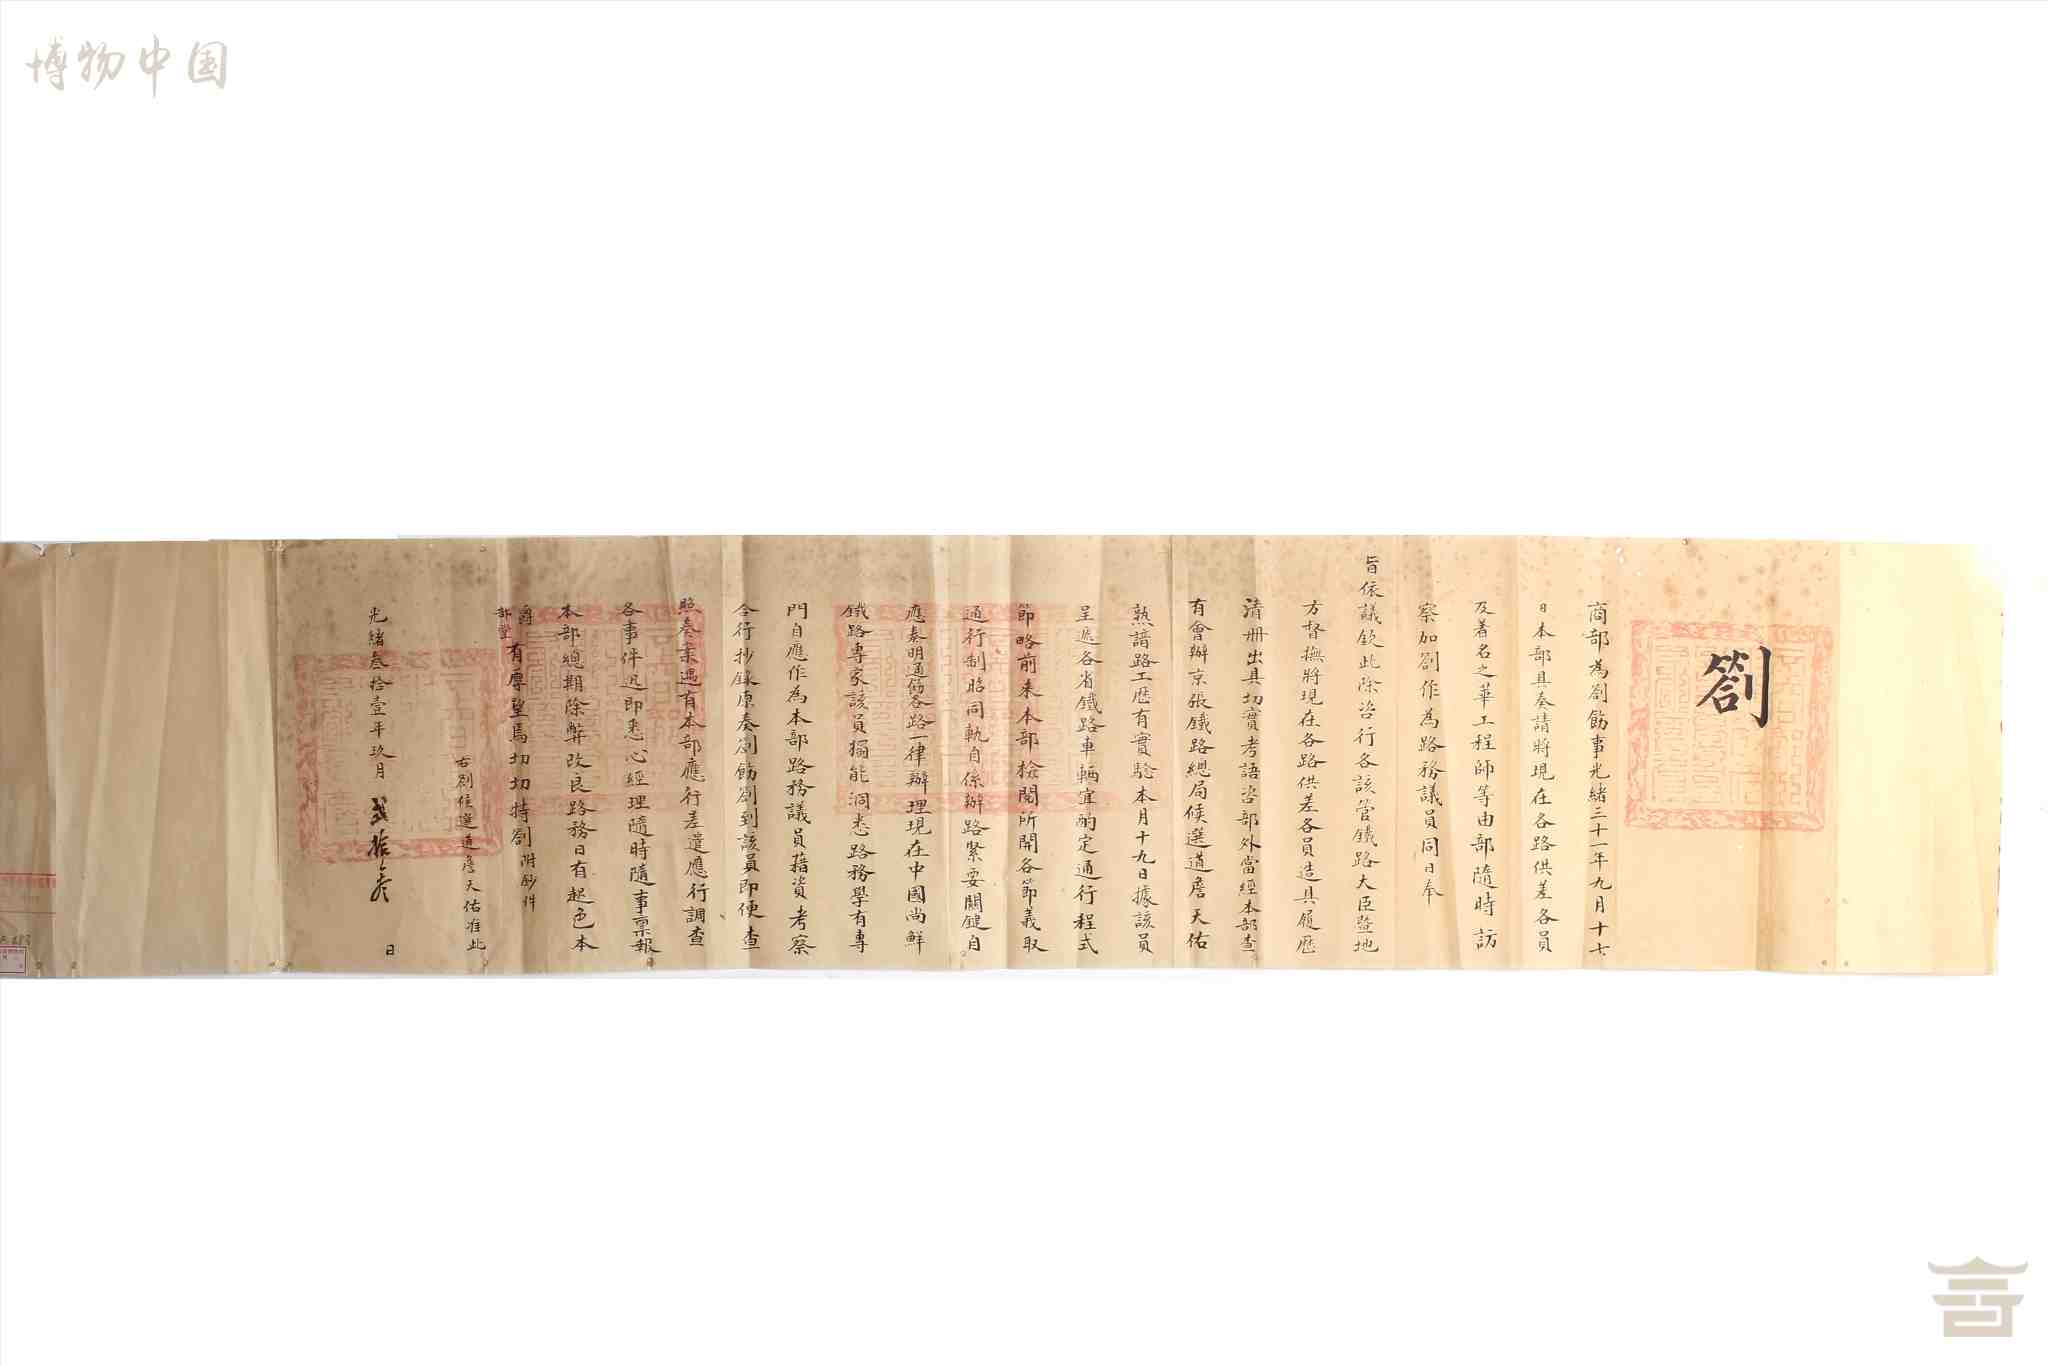 博物中国
劄
商部為劄飭事光緒三十一年九月十七
日本部具奏請將現在各路供差各員
及著名之華工程師等由部隨時訪
察加劄作為路務議員同日奉
旨依議欽此除咨行各該管鐵路大臣暨地
方督撫將現在各路供差各員造具履歷
清冊出具切實考語咨部外當經本部查
有會辦京張鐵路總局候選道詹天佑
熟諳路工歷有實驗本月十九日據該員
呈遞各省鐵路車輛宜酌定通行程式
節略前來本部檢閱所開各節義取
通行制昭同軌自係辦路緊要關鍵自
應奏明通飭各路一律辦理現在中國尚鮮
鐵路專家該員獨能洞悉路務學有專
門自應作為本部路務議員藉資考察
合行抄錄原奏劄飭劄到該員即便查
照奏案遇有本部應行差遣應行調查
各事件迅即悉心經理隨時隨事稟報
本部總期除弊改良路務日有起色本
爵部堂有厚望焉切切特劄附鈔件
右劄候選道詹天佑准此
光緒叁拾壹年玖月貳拾 日